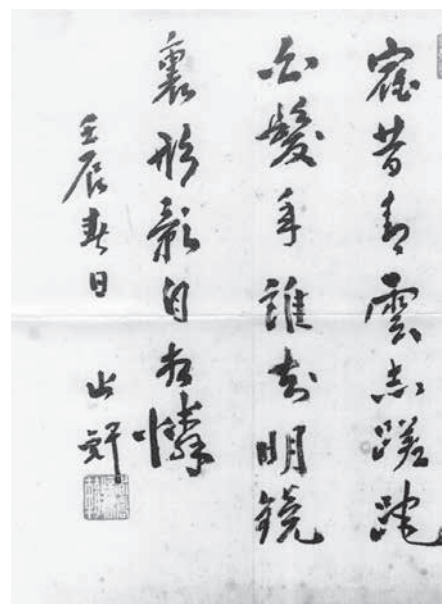 宿昔青雲志蹉跎
白髮年誰知明鏡
裏形影自相憐
壬辰春日 止軒